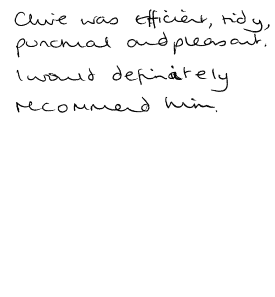 Clive was efficient, tidy,
punctual and pleasant.
I would definitely
recommend him.